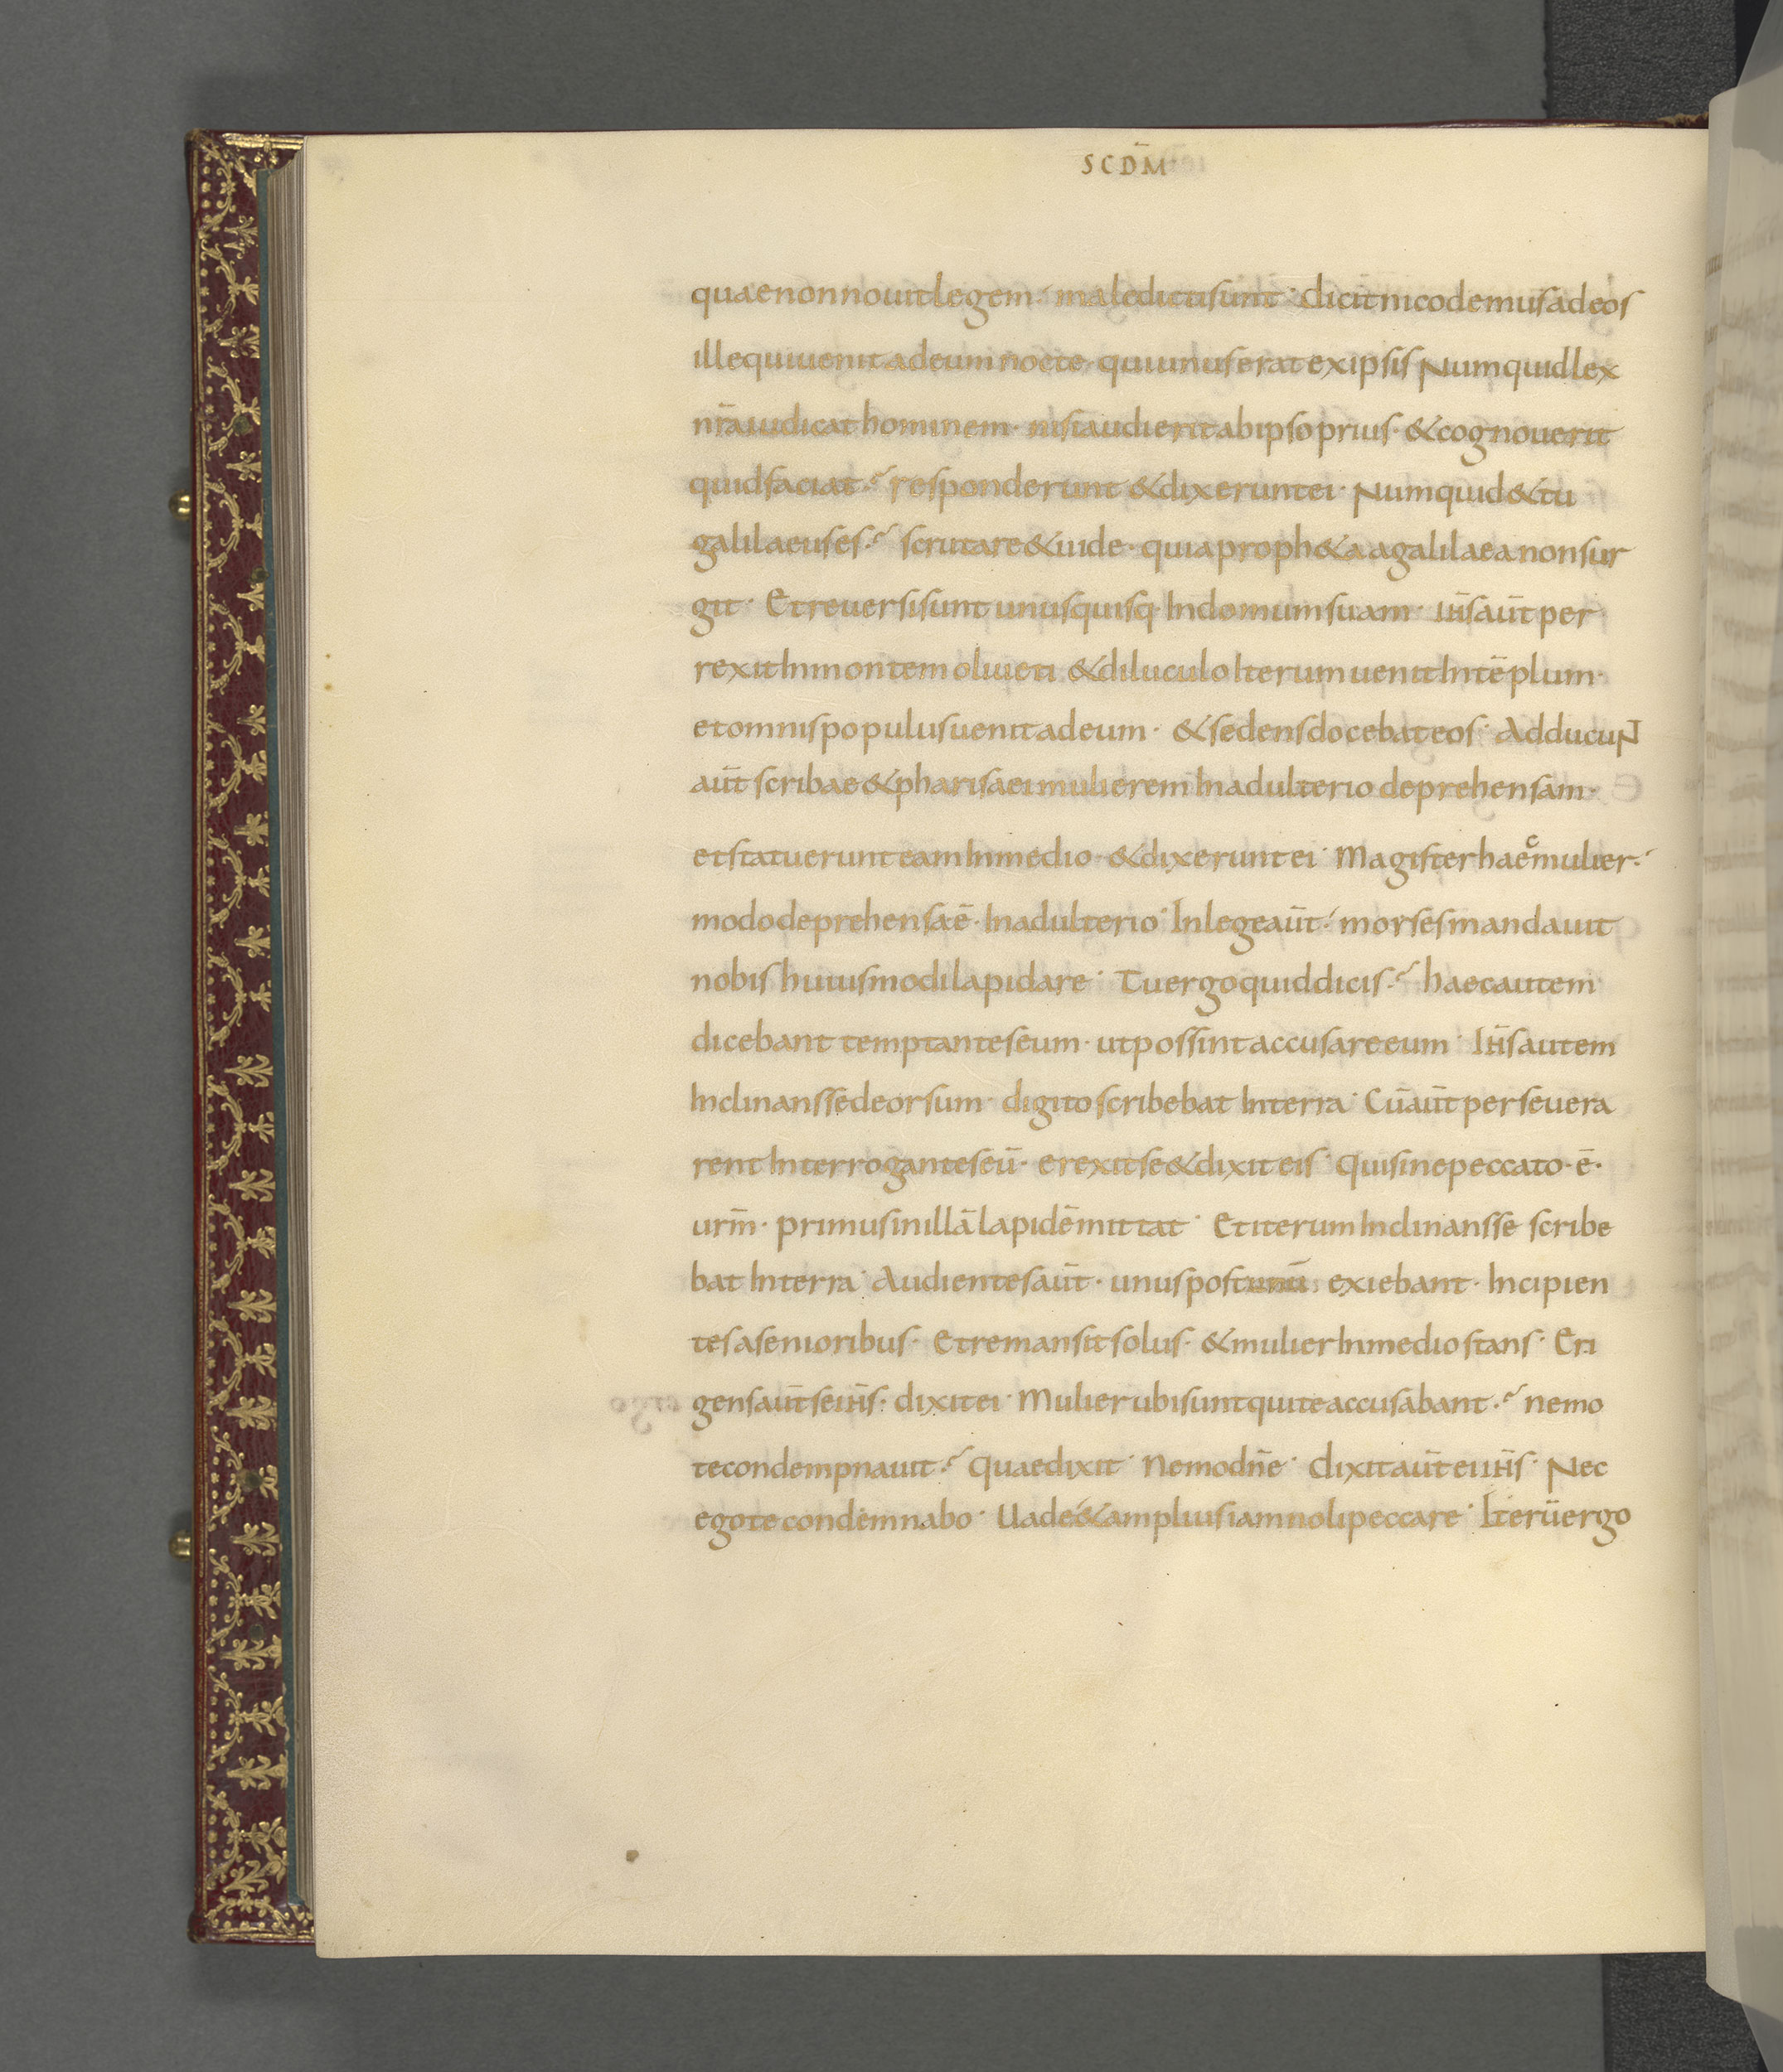 SCDM̄
quae non nouit legem· maledicti sunt· dicit nicodemus ad eos
ille qui uenit ad eum nocte· qui unus erat ex ipsis Numquid lex
nr̄a iudicat hominem· nisi audierit ab ipso prius· & cognouerit
quid faciat? responderunt & dixerunt ei· Numquid & tu
galilaeus es? scrutare & uide· quia proph&a a galilaea non sur
git· Et reuersi sunt unusquisq· In domum suam· ih̄s aūt per
rexit In montem oliueti & diluculo Iterum uenit In tēplum·
et omnis populus uenit ad eum· & sedens docebat eos· AdducuNT
aūt scribae & pharisaei mulierem In adulterio deprehensam·
et statuerunt eam In medio· & dixerunt ei· Magister haec mulier·
modo deprehensa ē· In adulterio· In lege aūt· moyses mandauit
nobis huiusmodi lapidare· Tu ergo quid dicis? haec autem
dicebant temptantes eum· ut possint accusare eum· Ih̄s autem
Inclinans se deorsum· digito scribebat In terra· Cū aūt perseuera
rent Interrogantes eū· erexit se & dixit eis· Qui sine peccato· ē·
urm̄· primus in illā lapidē mittat· Et iterum Inclinans se scribe
bat In terra· Audientes aūt· unus post unū exiebant· Incipien
tes a senioribus· Et remansit solus· & mulier In medio stans· Eri
gens aūt se ih̄s· dixit ei· Mulier ubi sunt qui te accusabant? nemo
te condempnauit? Quae dixit· Nemo dn̄e· dixit aūt ei ih̄s· Nec
ego te condemnabo· Uade & amplius iam noli peccare· Iterū ergo